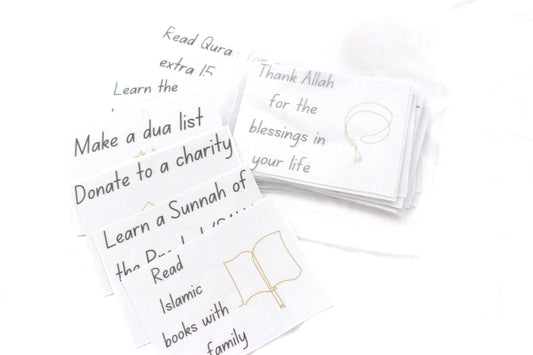 Read Qura
extra 15
Learn the
Make a dua list
Donate to a charity
Learn a Sunnah of
the
Read
Islamic
books with
family
Thank Allah
for the
blessings in
your life